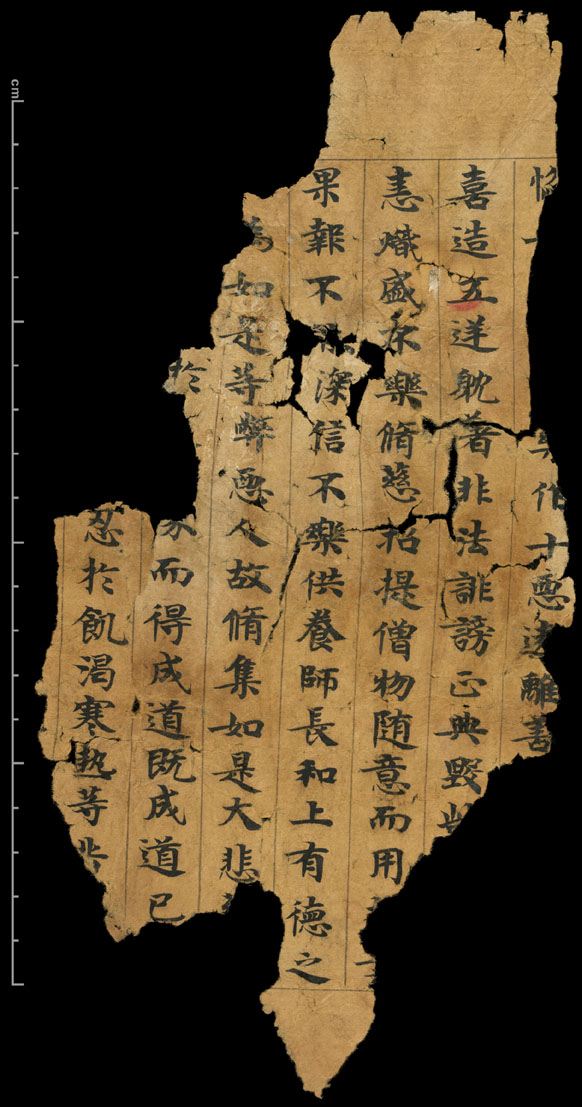 作十惡遠離善
喜造五逆躭著非法誹謗正典毀
恚熾盛不樂脩慈招提僧物随意而用
果報不深信不樂供養師長和上有徳之
為如是等弊惡人故脩集如是大悲
於
而得成道既成道已
忍於飢渴寒熱等